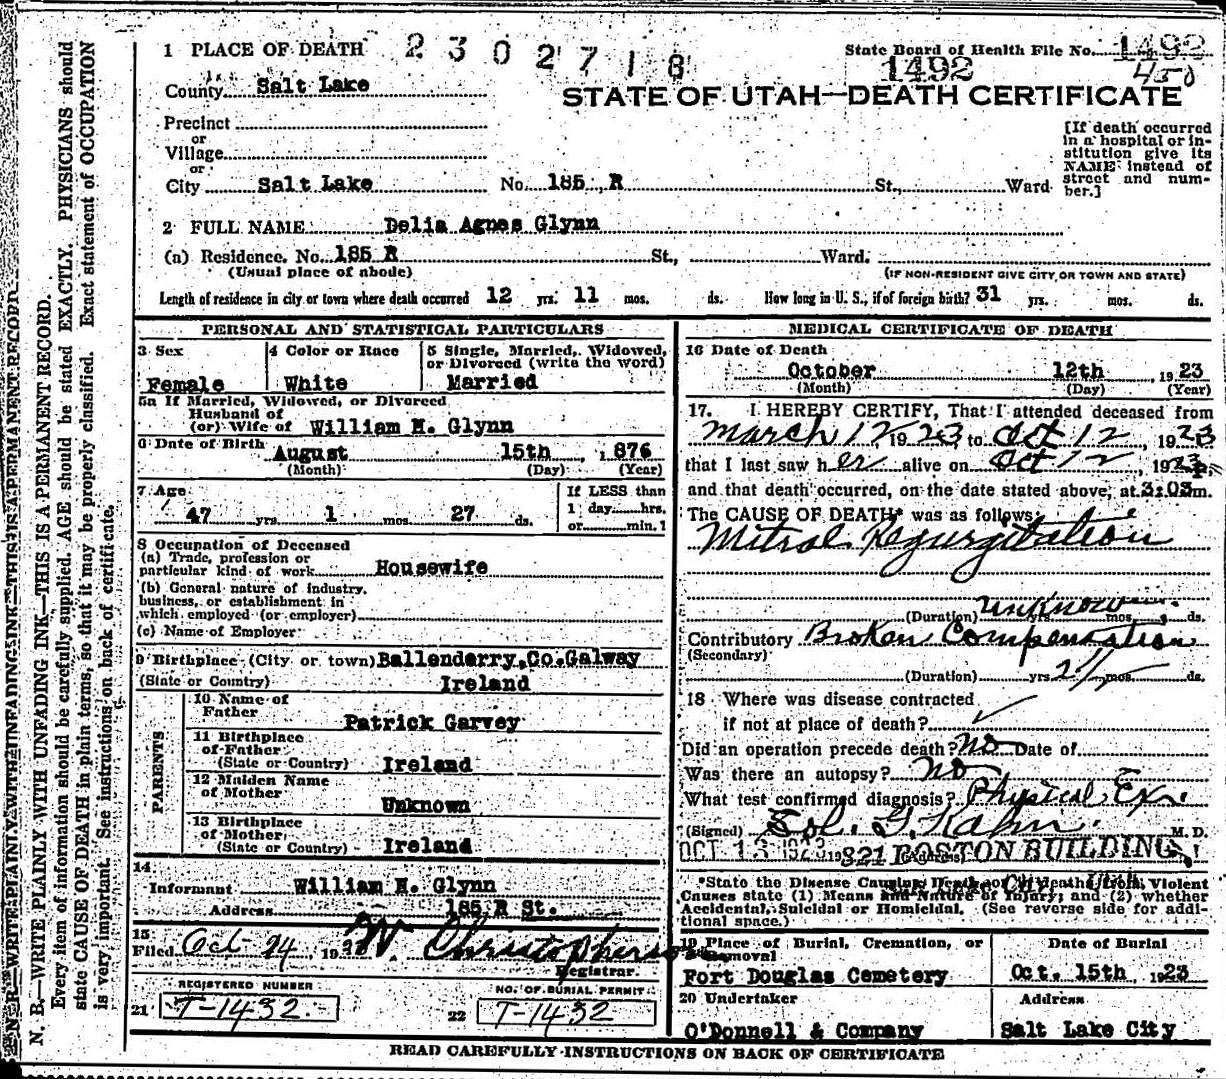 1 PLACE OF DEATH 2302718 State Board of Health File No. 1492
1492 450
County Salt Lake
STATE OF UTAH—DEATH CERTIFICATE
Precinct
or
Village
or
City Salt Lake No. 185 R St., Ward
[If death occurred
in a hospital or in-
stitution give its
NAME instead of
street and num-
ber.]
2 FULL NAME Delia Agnes Glynn
(a) Residence. No. 185 R St., Ward.
(Usual place of abode) (IF NON-RESIDENT GIVE CITY OR TOWN AND STATE)
Length of residence in city or town where death occurred 12 yrs. 11 mos. ds. How long in U. S., if of foreign birth? 31 yrs. mos. ds.
PERSONAL AND STATISTICAL PARTICULARS
3 Sex 4 Color or Race 5 Single, Married, Widowed,
or Divorced (write the word)
Female White Married
5a If Married, Widowed, or Divorced
Husband of
(or) Wife of William H. Glynn
6 Date of Birth August 15th , 1876
(Month) (Day) (Year)
7 Age If LESS than
1 day......hrs.
47 yrs. 1 mos. 27 ds. or......min.
8 Occupation of Deceased
(a) Trade, profession or
particular kind of work Housewife
(b) General nature of industry,
business, or establishment in
which employed (or employer)
(c) Name of Employer
9 Birthplace (City or town) Ballenderry, Co. Galway
(State or Country) Ireland
PARENTS
10 Name of
Father Patrick Garvey
11 Birthplace
of Father
(State or Country) Ireland
12 Maiden Name
of Mother Unknown
13 Birthplace
of Mother
(State or Country) Ireland
14
Informant William H. Glynn
Address 185 R St.
15
Filed Oct 24, 1923 W. Christopherson
Registrar.
REGISTERED NUMBER NO. OF BURIAL PERMIT
21 T-1432 22 T-1432
MEDICAL CERTIFICATE OF DEATH
16 Date of Death
October 12th 1923
(Month) (Day) (Year)
17. I HEREBY CERTIFY, That I attended deceased from
March 12 1923 to Oct 12, 1923
that I last saw her alive on Oct 12, 1923
and that death occurred, on the date stated above, at 3:03 P m.
The CAUSE OF DEATH* was as follows:
Mitral Regurgitation
(Duration) unknown yrs. mos. ds.
Contributory Broken Compensation
(Secondary)
(Duration) yrs. mos. ds.
18 Where was disease contracted
if not at place of death?
Did an operation precede death? No Date of
Was there an autopsy? No
What test confirmed diagnosis? Physical Ex.
(Signed) Sol. G. Kahn M. D.
OCT 13 1923 19 (Address) 321 BOSTON BUILDING
*State the Disease Causing Death, or in deaths from Violent
Causes state (1) Means and Nature of Injury; and (2) whether
Accidental, Suicidal or Homicidal. (See reverse side for addi-
tional space.)
19 Place of Burial, Cremation, or Date of Burial
Removal
Fort Douglas Cemetery Oct. 15th, 1923
20 Undertaker Address
O'Donnell & Company Salt Lake City
READ CAREFULLY INSTRUCTIONS ON BACK OF CERTIFICATE
N. B.—WRITE PLAINLY WITH UNFADING INK—THIS IS A PERMANENT RECORD
N. B.—WRITE PLAINLY WITH UNFADING INK—THIS IS A PERMANENT RECORD.
Every item of information should be carefully supplied. AGE should be stated EXACTLY. PHYSICIANS should
state CAUSE OF DEATH in plain terms, so that it may be properly classified. Exact statement of OCCUPATION
is very important. See instructions on back of certificate.